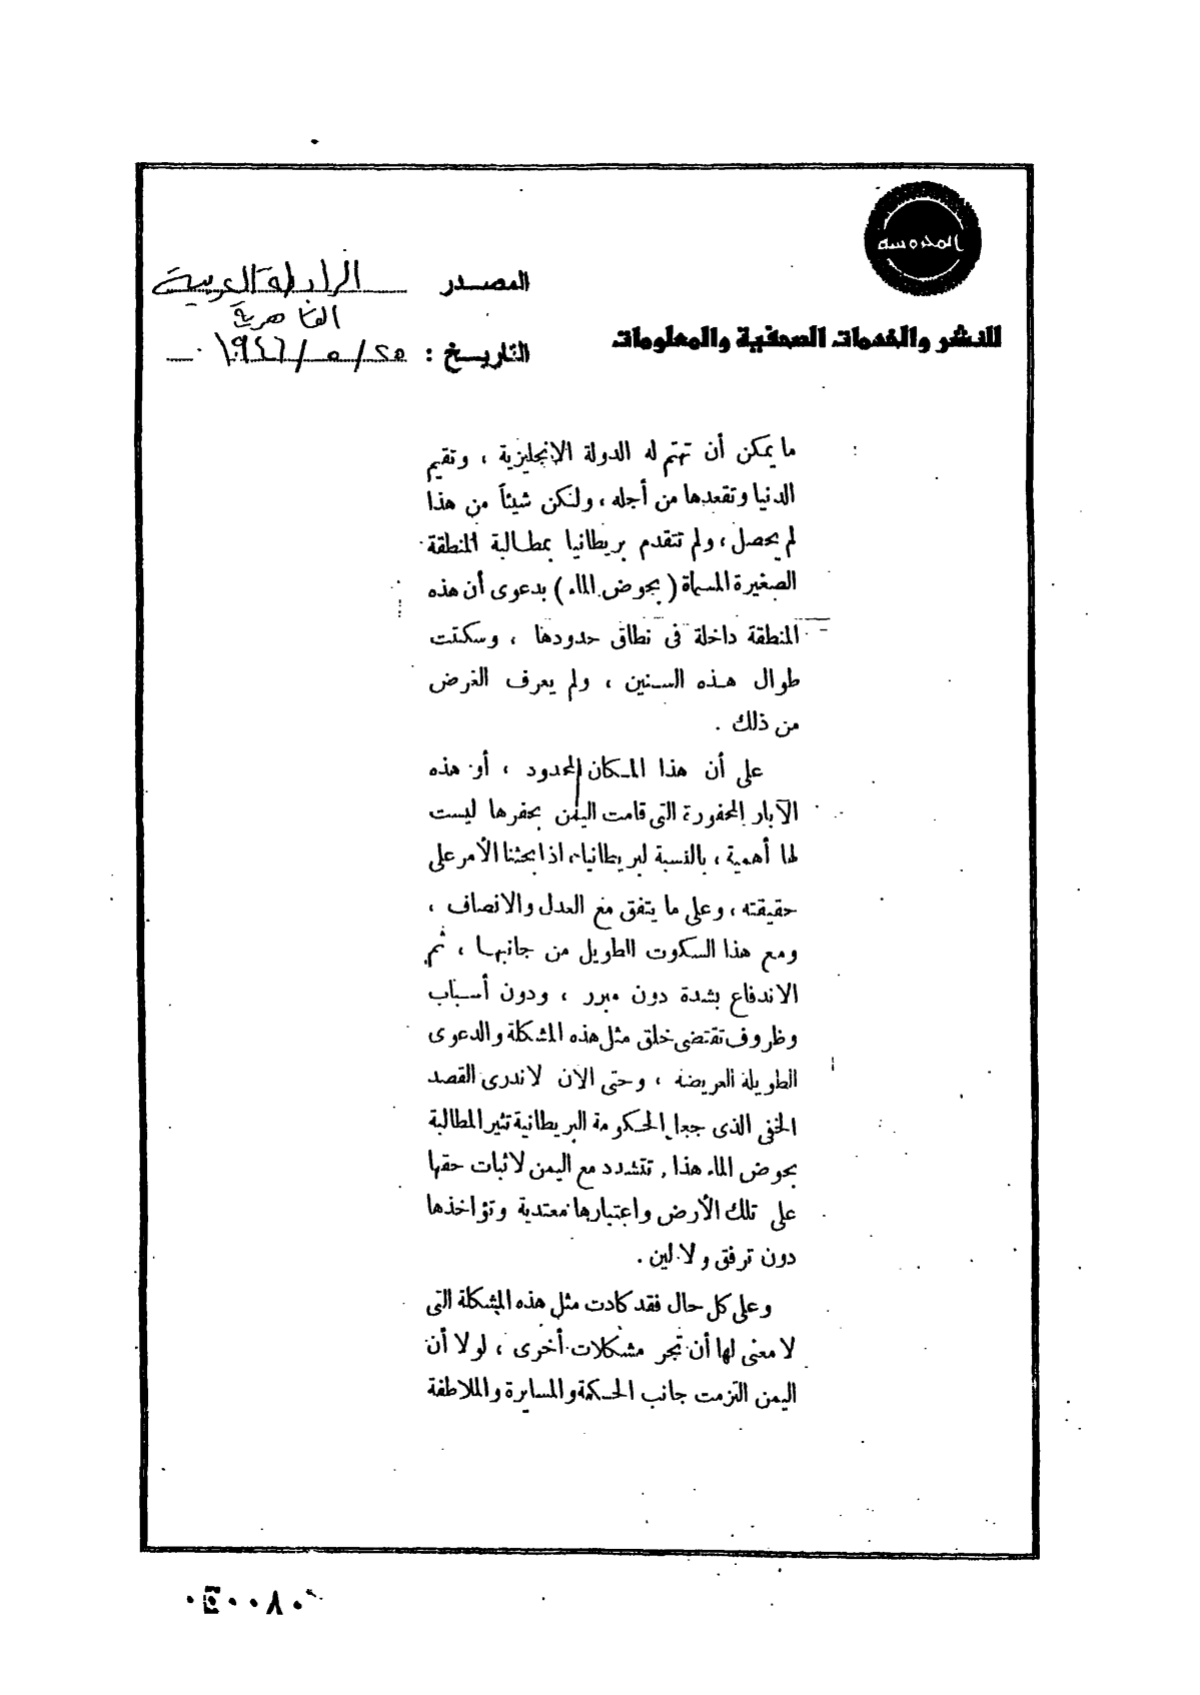 المحروسة
للنشر والخدمات الصحفية والمعلومات
المصدر الرابطة العربية
القاهرية
التاريخ : ٢٥/٥/١٩٤٦
ما يمكن أن تهتم له الدولة الانجليزية ، وتقيم
الدنيا وتقعدها من أجله ، ولكن شيئاً من هذا
لم يحصل ، ولم تتقدم بريطانيا بمطالبة المنطقة
الصغيرة المسماة ( بحوض الماء ) بدعوى أن هذه
المنطقة داخلة فى نطاق حدودها ، وسكتت
طوال هذه السنين ، ولم يعرف الغرض
من ذلك .
على أن هذا المكان المحدود ، أو هذه
الآبار المحفورة التى قامت اليمن بحفرها ليست
لها أهمية ، بالنسبة لبريطانيا، اذا بحثنا الأمر على
حقيقته ، وعلى ما يتفق مع العدل والانصاف ،
ومع هذا السكوت الطويل من جانبها ، ثم
الاندفاع بشدة دون مبرر ، ودون أسباب
وظروف تقتضى خلق مثل هذه المشكلة والدعوى
الطويلة العريضة ، وحتى الآن لاندرى القصد
الخفى الذى جعل الحكومة البريطانية تثير المطالبة
بحوض الماء هذا , تتشدد مع اليمن لاثبات حقها
على تلك الأرض واعتبارها معتدية وتؤاخذها
دون ترفق ولا لين .
وعلى كل حال فقد كادت مثل هذه المشكلة التى
لا معنى لها أن تجر مشكلات أخرى ، لولا أن
اليمن التزمت جانب الحكمة والمسايرة والملاطفة